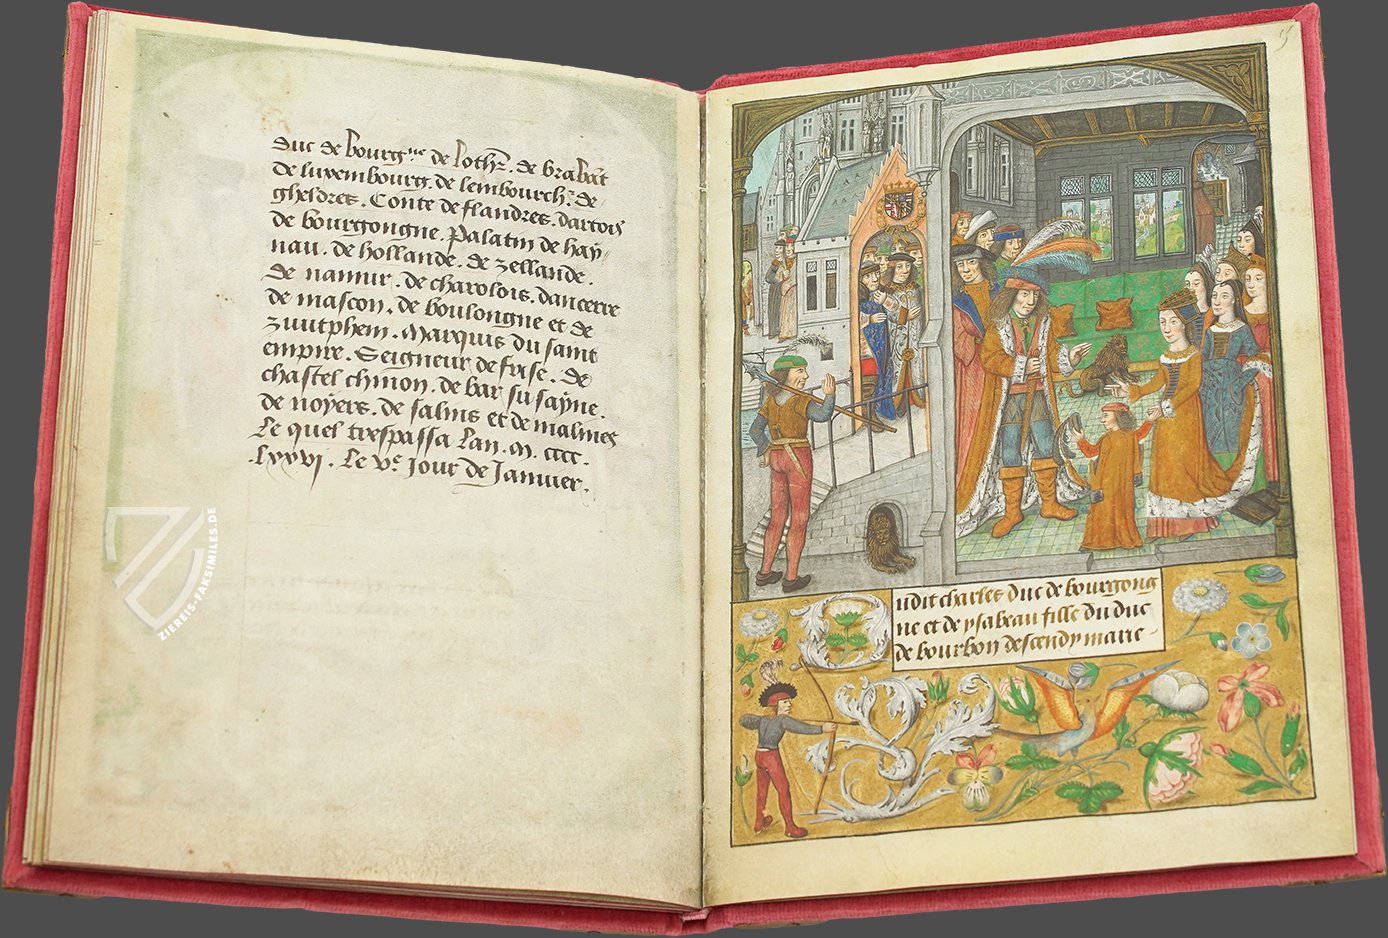 duc de bourg.ne de loth.r de brabāt
de luxembourg. de lembourch.r de
gheldres. Conte de flandres. dartois
de bourgongne. palatin de hay
nau. de hollande. de zellande.
de namur. de charolois. dancerre
de mascon. de boulongne et de
zuutphem. Marquis du saint
empire. Seigneur de frise. de
chastel chinon. de bar su sayne.
de noyers. de salins et de malines
Le quel trespassa Lan. M. cccc.
.Lxxvi. Le v.e Jour de Januier.
ZIEREIS-FAKSIMILES.DE
Dudit charles duc de bourgong
ne et de ysabeau fille du duc
de bourbon descendy marie